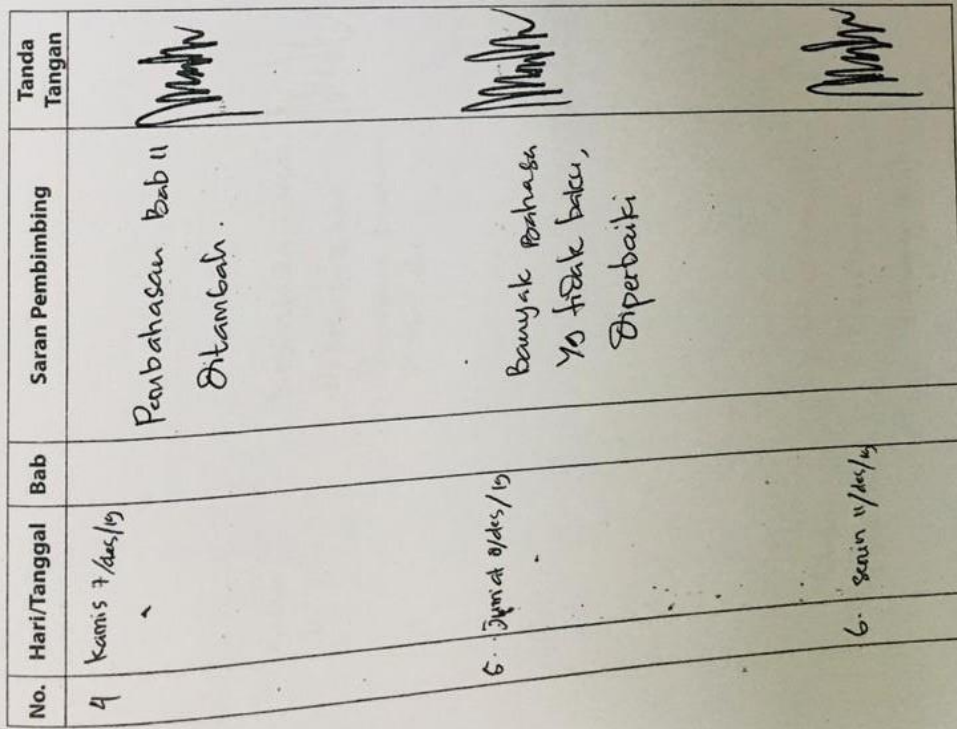 No. Hari/Tanggal Bab Saran Pembimbing Tanda Tangan
4 Kamis 7/des/19 Pembahasan Bab II
Ditambah.
5. Jumat 8/des/19 Banyak Bahasa
Yg tidak baku,
Diperbaiki
6. Senin 11/des/19